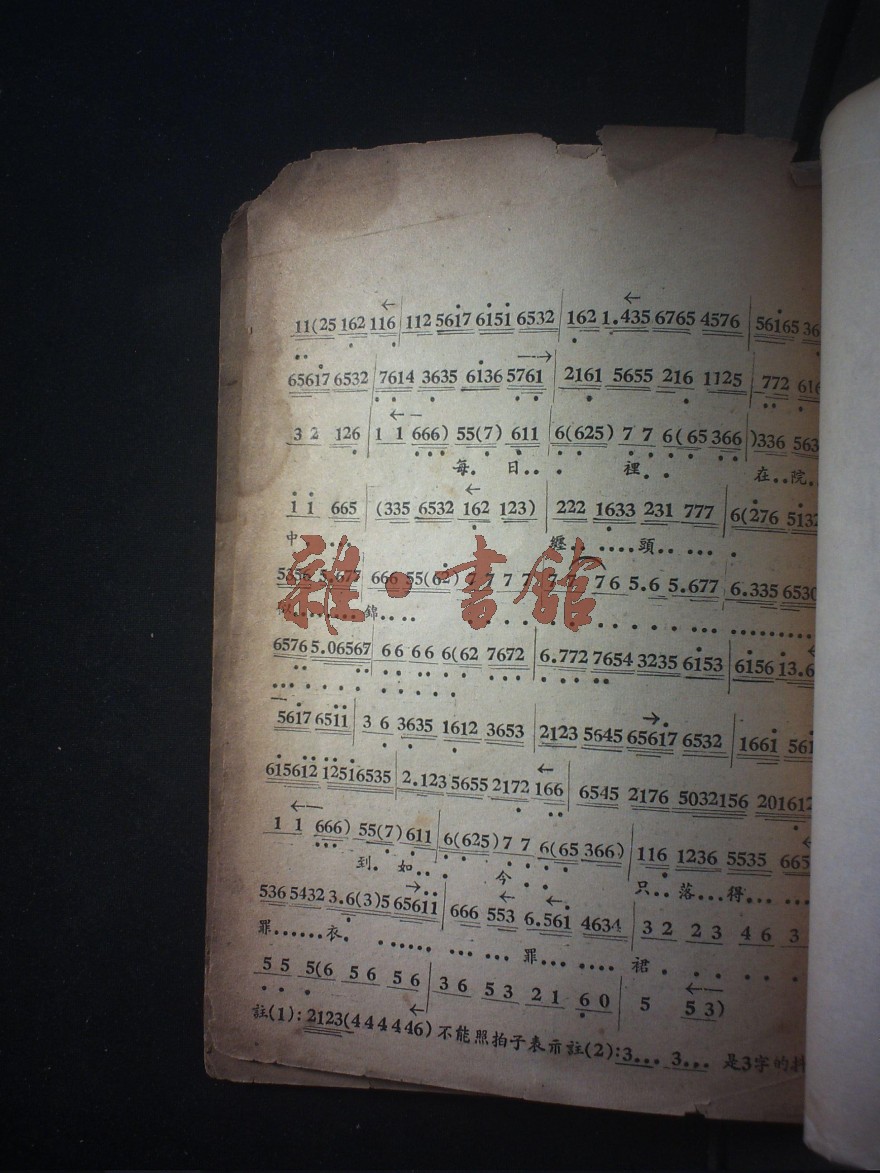 11(25 162 116 | 112 5617 6151 6532 | 162 1.435 6765 4576 | 56165 36
65617 6532 | 7614 3635 6136 5761 | 2161 5655 216 1125 | 772 616
3 2 126 | 1 1 666) 55(7) 611 | 6(625) 7 7 6(65 366) | 336 563
每. 日... 裡.. 在..院..
1 1 665 | (335 6532 162 123) | 222 1633 231 777 | 6(276 5132
中.... 纏.......頭......
5356 5.677 | 666 55(62) 7 7 7 7 7 7 7 6 5.6 5.677 | 6.335 6530
錦....
雜·書館
6576 5.06567 | 6 6 6 6 6(62 7672 | 6.772 7654 3235 6153 | 6156 13.6
5617 6511 | 3 6 3635 1612 3653 | 2123 5645 65617 6532 | 1661 561
615612 12516535 | 2.123 5655 2172 166 | 6545 2176 5032156 201612
1 1 666) 55(7) 611 | 6(625) 7 7 6(65 366) | 116 1236 5535 665
到. 如... 今.. 只..落...得....
536 5432 3.6(3)5 65611 | 666 553 6.561 4634 | 3 2 2 3 4 6 3
罪......衣. ...... ...罪... .... 裙. . . . .
5 5 5(6 5 6 5 6 | 3 6 5 3 2 1 6 0 | 5 5 3)
註(1): 2123(444446) 不能照拍子表示 註(2): 3... 3... 是3字的